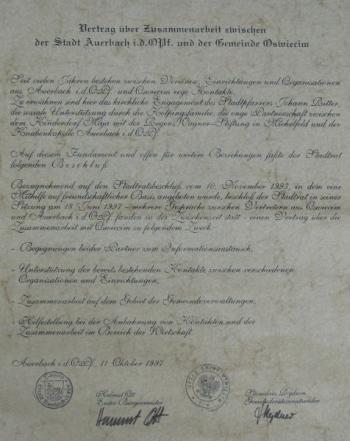 Vertrag über Zusammenarbeit zwischen
der Stadt Auerbach i.d.OPf. und der Gemeinde Oswiecim
Seit vielen Jahren bestehen zwischen Vereinen, Einrichtungen und Organisationen
aus Auerbach i.d.OPf. und Oswiecim rege Kontakte.
Zu erwähnen sind hier das kirchliche Engagement des Stadtpfarrers Johann Ritter,
die soziale Unterstützung durch die Kolpingfamilie, die enge Partnerschaft zwischen
dem Kinderdorf Maja mit der Regens-Wagner-Stiftung in Michelfeld und der
Knabenkapelle Auerbach i.d.OPf.
Auf diesem Fundament und offen für weitere Beziehungen faßte der Stadtrat
folgenden Beschluß:
Bezugnehmend auf den Stadtratsbeschluß vom 10. November 1993, in dem eine
Mithilfe auf freundschaftlicher Basis angeboten wurde, beschloß der Stadtrat in seiner
Sitzung am 18. Juni 1997 - mehrere Gespräche zwischen Vertretern aus Oswiecim
und Auerbach i.d.OPf. fanden in der Zwischenzeit statt - einen Vertrag über die
Zusammenarbeit mit Oswiecim zu folgendem Zweck:
- Begegnungen beider Partner zum Informationsaustausch,
- Unterstützung der bereits bestehenden Kontakte zwischen verschiedenen
Organisationen und Einrichtungen,
- Zusammenarbeit auf dem Gebiet der Gemeindeverwaltungen,
- Hilfestellung bei der Anbahnung von Kontakten und der
Zusammenarbeit im Bereich der Wirtschaft.
Auerbach i.d.OPf., 11. Oktober 1997
Helmut Ott
Erster Bürgermeister
Helmut Ott